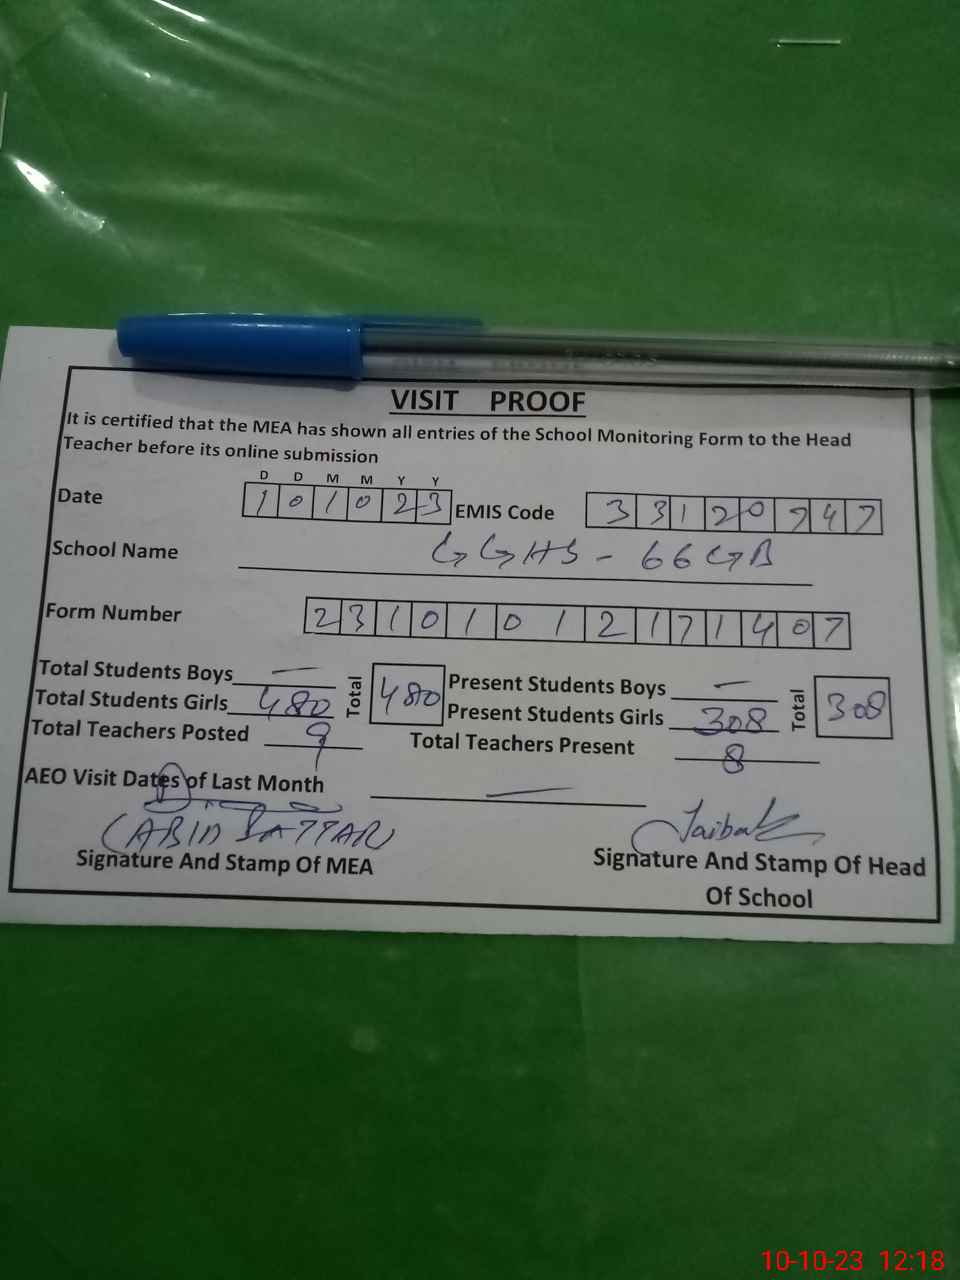 VISIT PROOF
It is certified that the MEA has shown all entries of the School Monitoring Form to the Head
Teacher before its online submission
D D M M Y Y
Date 1 0 1 0 2 3 EMIS Code 3 3 1 2 0 7 4 7
School Name GGHS - 66 GB
Form Number 2 3 1 0 1 0 1 2 1 7 1 4 0 7
Total Students Boys — Total 480 Present Students Boys — Total 308
Total Students Girls 480 Present Students Girls 308
Total Teachers Posted 9 Total Teachers Present 8
AEO Visit Dates of Last Month —
(ABID SATTAR)
Signature And Stamp Of MEA Signature And Stamp Of Head
Of School
10-10-23 12:18